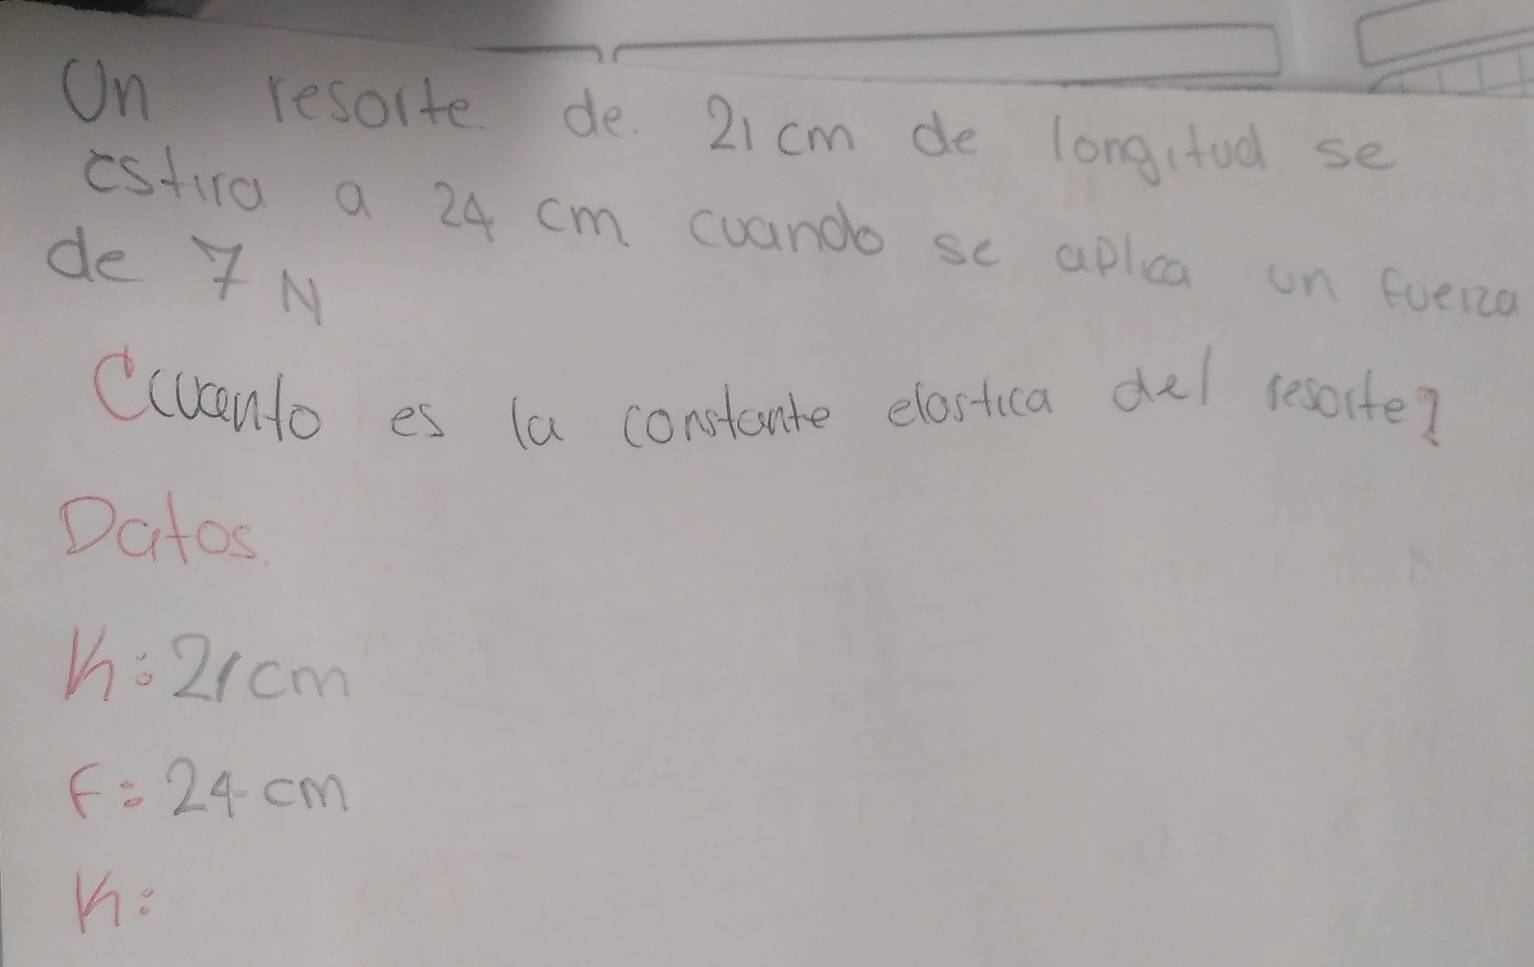 Un resorte de. 21 cm de longitud se
estira a 24 cm cuando se aplica un fuerza
de 7 N
Ccuanto es la constante elastica del resorte?
Datos.
K: 21cm
F: 24 cm
K: